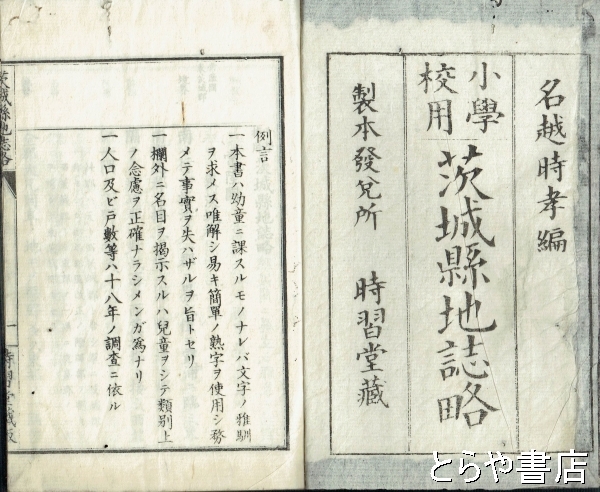 名越時孝編
小學校用
茨城縣地誌略
製本發兌所 時習堂藏
例言
一本書ハ幼童ニ課スルモノナレバ文字ノ雅馴
ヲ求メス唯解シ易キ簡單ノ熟字ヲ使用シ務
メテ事實ヲ失ハザルヲ旨トセリ
一欄外ニ名目ヲ揭示スルハ兒童ヲシテ類別上
ノ念慮ヲ正確ナラシメンガ爲ナリ
一人口及ビ戸數等ハ十八年ノ調査ニ依ル
茨城縣地誌略
一
時習堂藏版
とらや書店